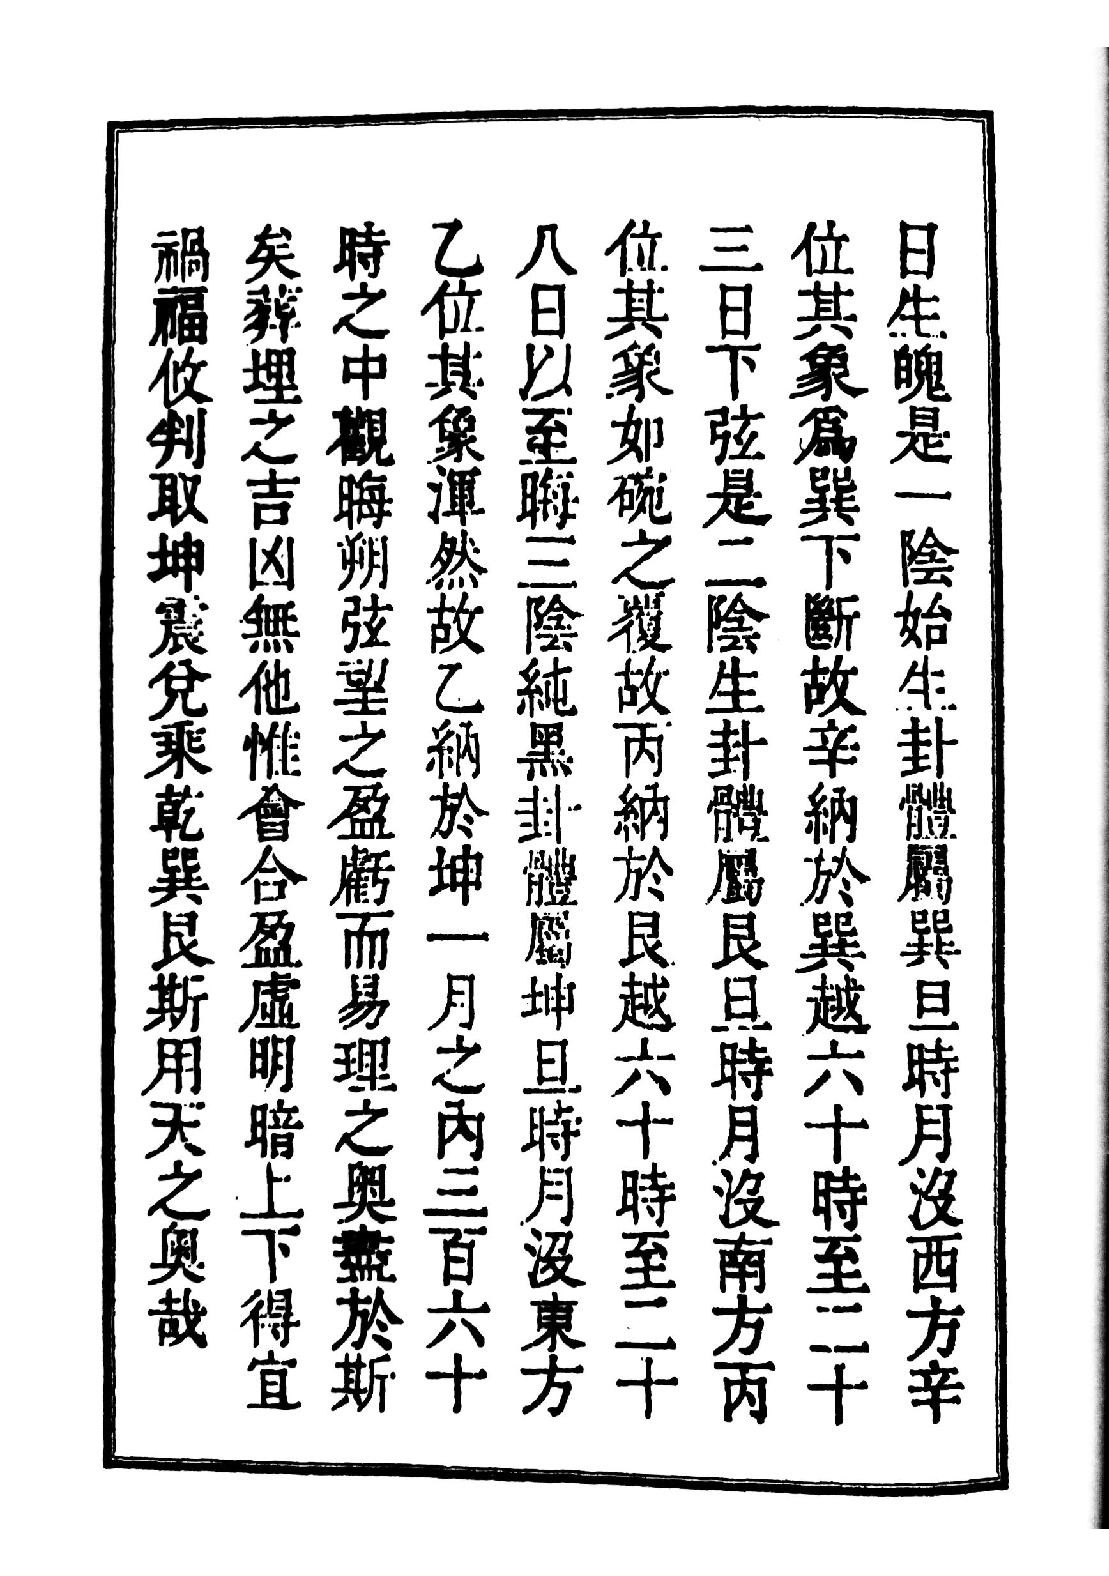 日生魄是一陰始生卦體屬巽旦時月沒西方辛
位其象爲巽下斷故辛納於巽越六十時至二十
三日下弦是二陰生卦體屬艮旦時月沒南方丙
位其象如碗之覆故丙納於艮越六十時至二十
八日以至晦三陰純黑卦體屬坤旦時月沒東方
乙位其象渾然故乙納於坤一月之內三百六十
時之中觀晦朔弦望之盈虧而易理之奧盡於斯
矣葬埋之吉凶無他惟會合盈虛明暗上下得宜
禍福攸判取坤震兌乘乾巽艮斯用天之奧哉